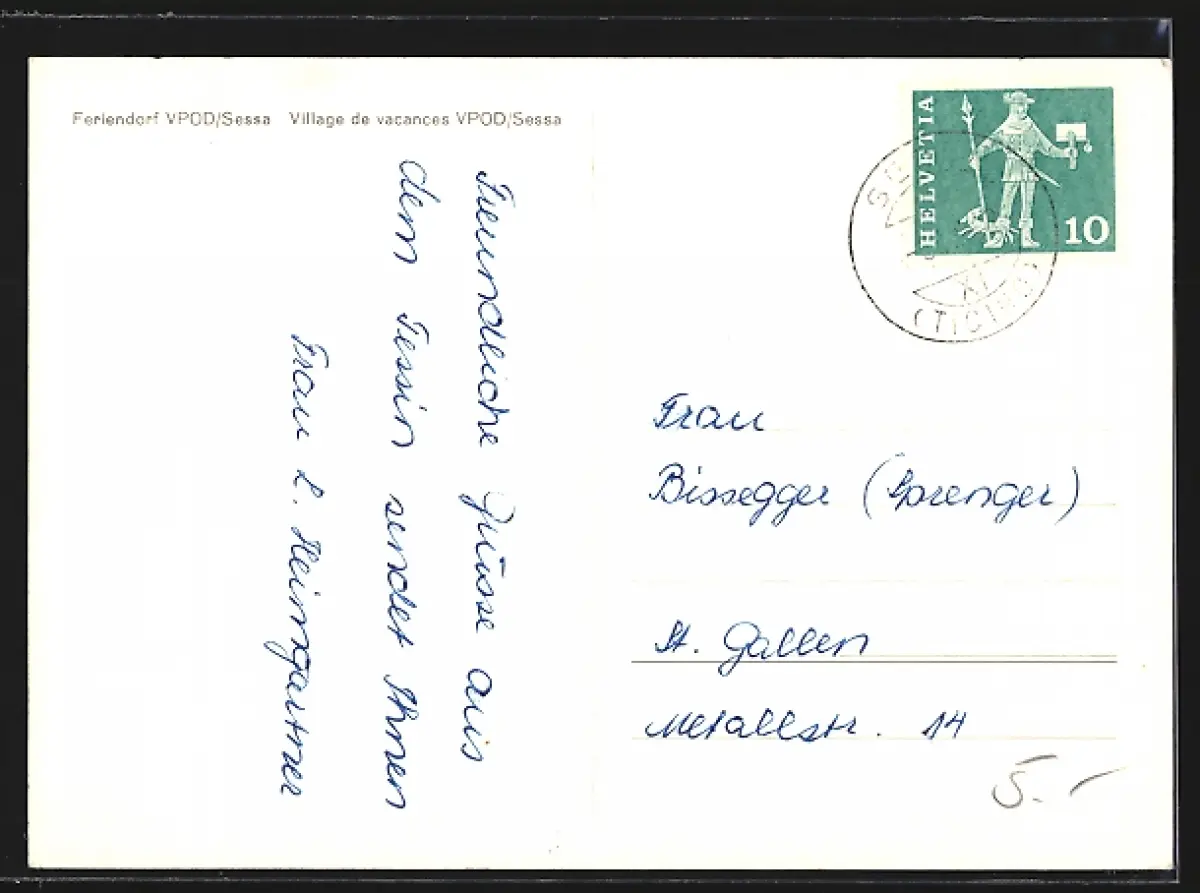 Feriendorf VPOD/Sessa Village de vacances VPOD/Sessa
Freundliche Grüsse aus
dem Tessin sendet Ihnen
Frau L. Heimgartner
HELVETIA
10
XI
(TICINO)
Frau
Bissegger (Sprenger)
St. Gallen
Metallstr. 14
5.-